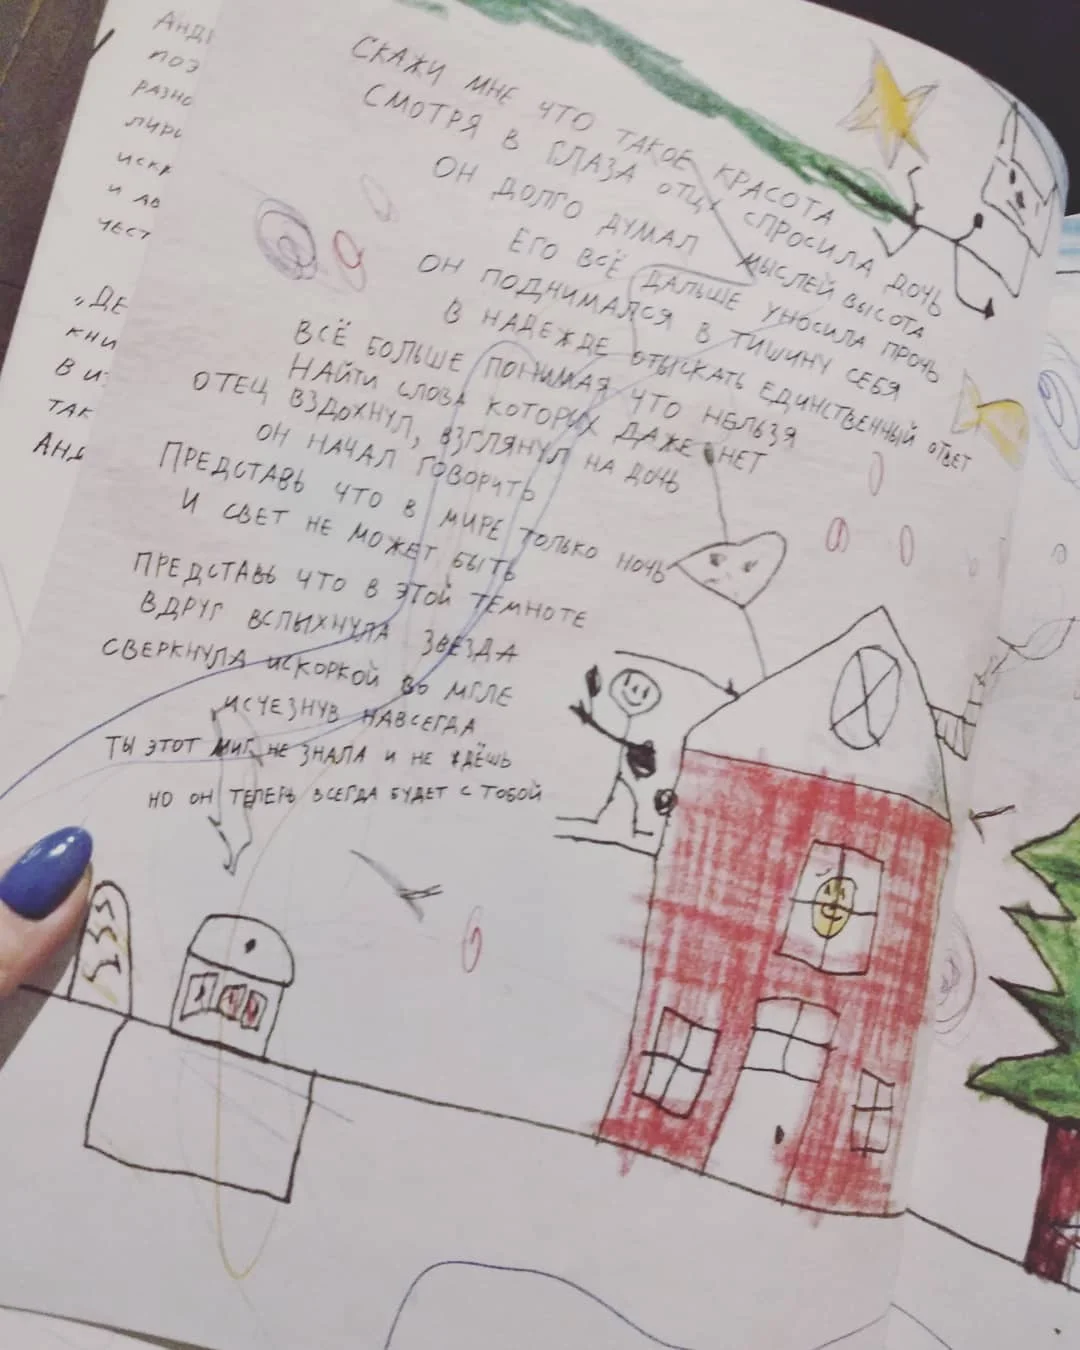 СКАЖИ МНЕ ЧТО ТАКОЕ КРАСОТА
СМОТРЯ В ГЛАЗА ОТЦУ СПРОСИЛА ДОЧЬ
ОН ДОЛГО ДУМАЛ МЫСЛЕЙ ВЫСОТА
ЕГО ВСЁ ДАЛЬШЕ УНОСИЛА ПРОЧЬ
ОН ПОДНИМАЛСЯ В ТИШИНУ СЕБЯ
В НАДЕЖДЕ ОТЫСКАТЬ ЕДИНСТВЕННЫЙ ОТВЕТ
ВСЁ БОЛЬШЕ ПОНИМАЯ ЧТО НЕЛЬЗЯ
НАЙТИ СЛОВА КОТОРЫХ ДАЖЕ НЕТ
ОТЕЦ ВЗДОХНУЛ, ВЗГЛЯНУЛ НА ДОЧЬ
ОН НАЧАЛ ГОВОРИТЬ
ПРЕДСТАВЬ ЧТО В МИРЕ ТОЛЬКО НОЧЬ
И СВЕТ НЕ МОЖЕТ БЫТЬ
ПРЕДСТАВЬ ЧТО В ЭТОЙ ТЕМНОТЕ
ВДРУГ ВСПЫХНУЛА ЗВЕЗДА
СВЕРКНУЛА ИСКОРКОЙ ВО МГЛЕ
ИСЧЕЗНУВ НАВСЕГДА
ТЫ ЭТОТ МИГ НЕ ЗНАЛА И НЕ ЖДЁШЬ
НО ОН ТЕПЕРЬ ВСЕГДА БУДЕТ С ТОБОЙ